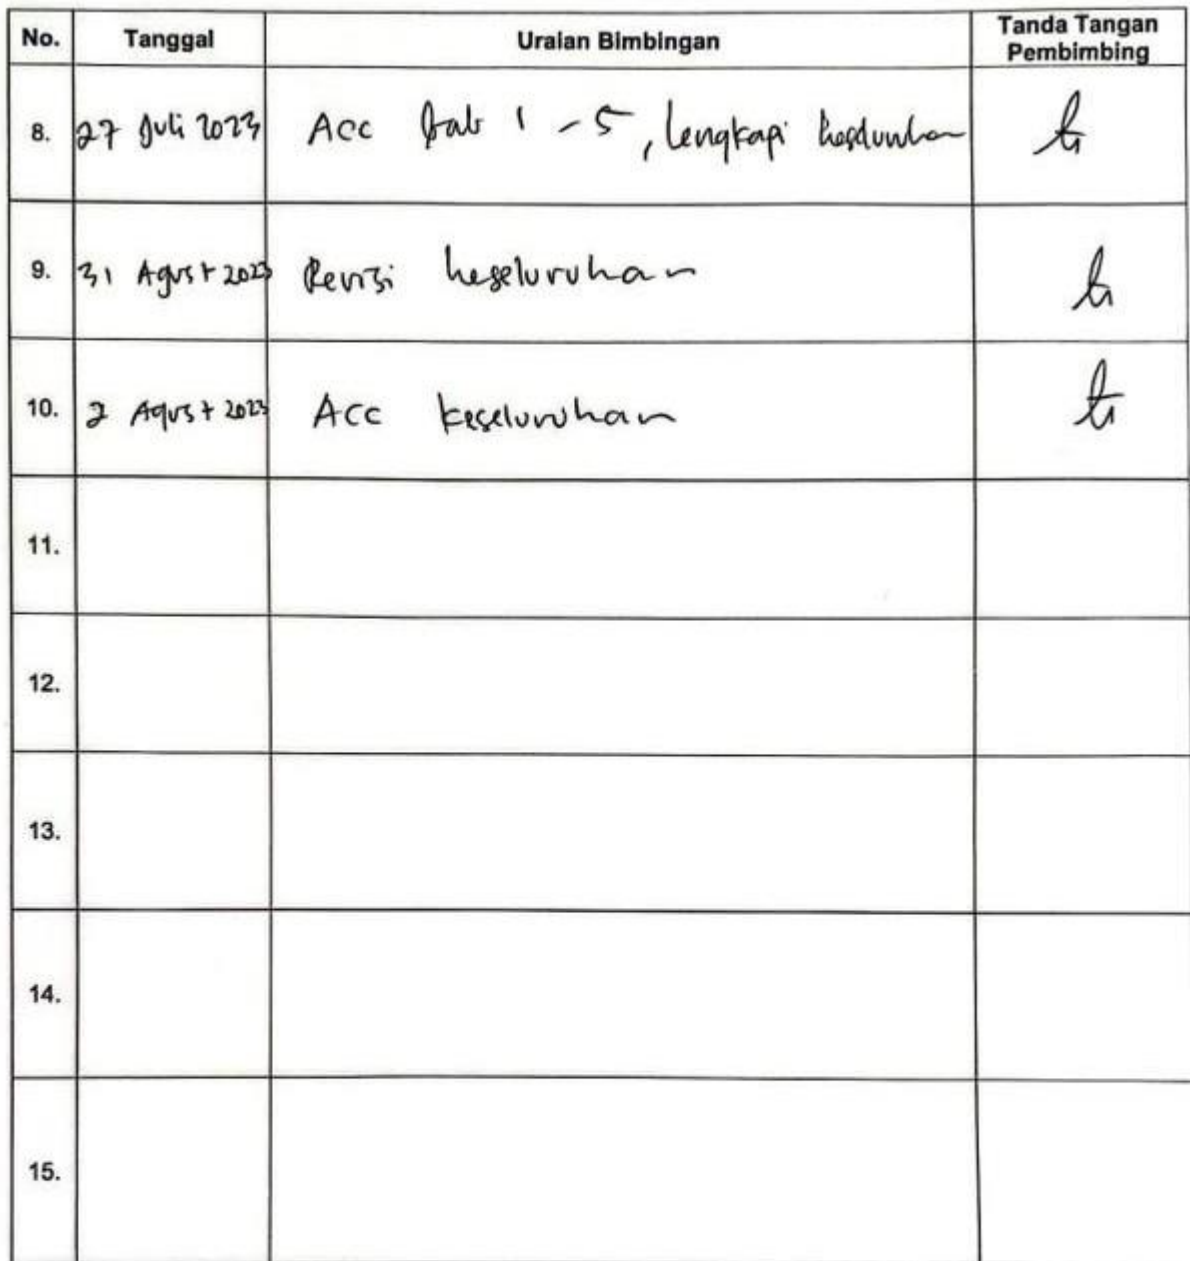 No. Tanggal Uraian Bimbingan Tanda Tangan
Pembimbing
8. 27 Juli 2023 Acc bab 1 - 5, lengkapi keseluruhan
9. 31 Agust 2023 Revisi keseluruhan
10. 2 Agust 2023 Acc keseluruhan
11.
12.
13.
14.
15.